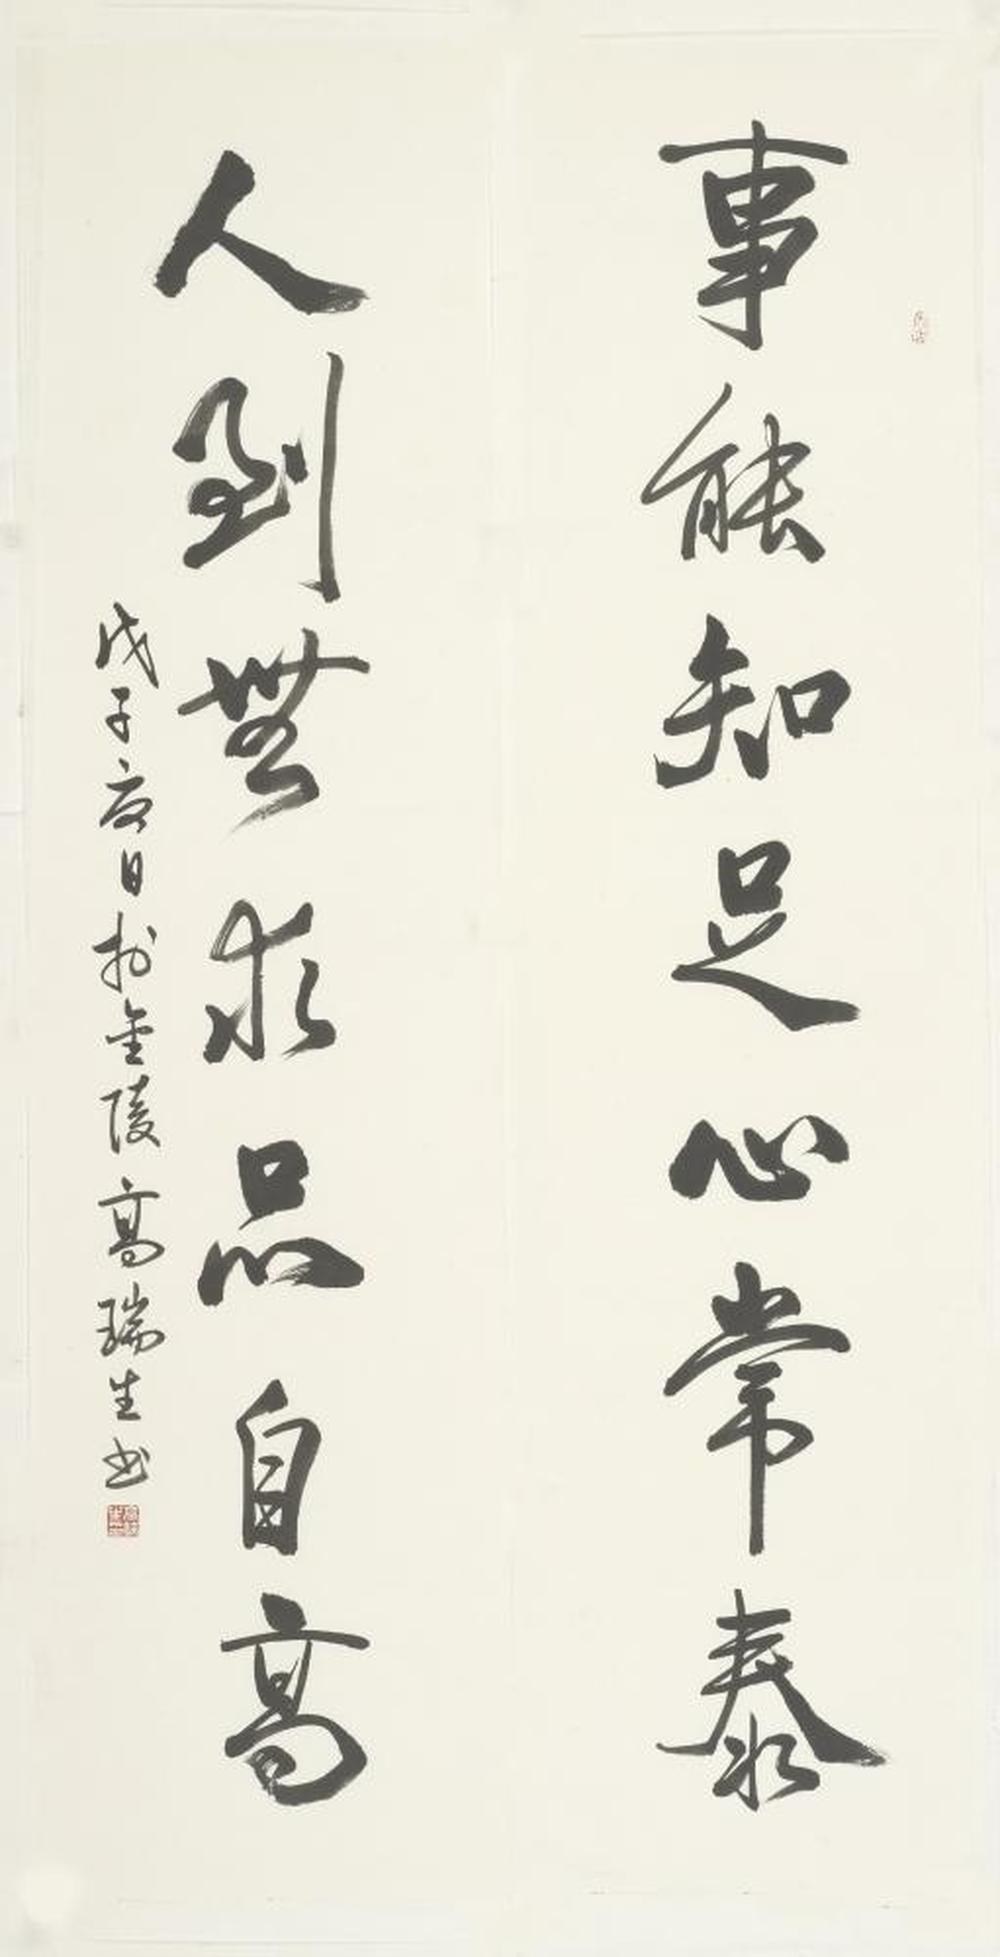 事能知足心常泰
人到無求品自高
戊子夏日於金陵高瑞生书